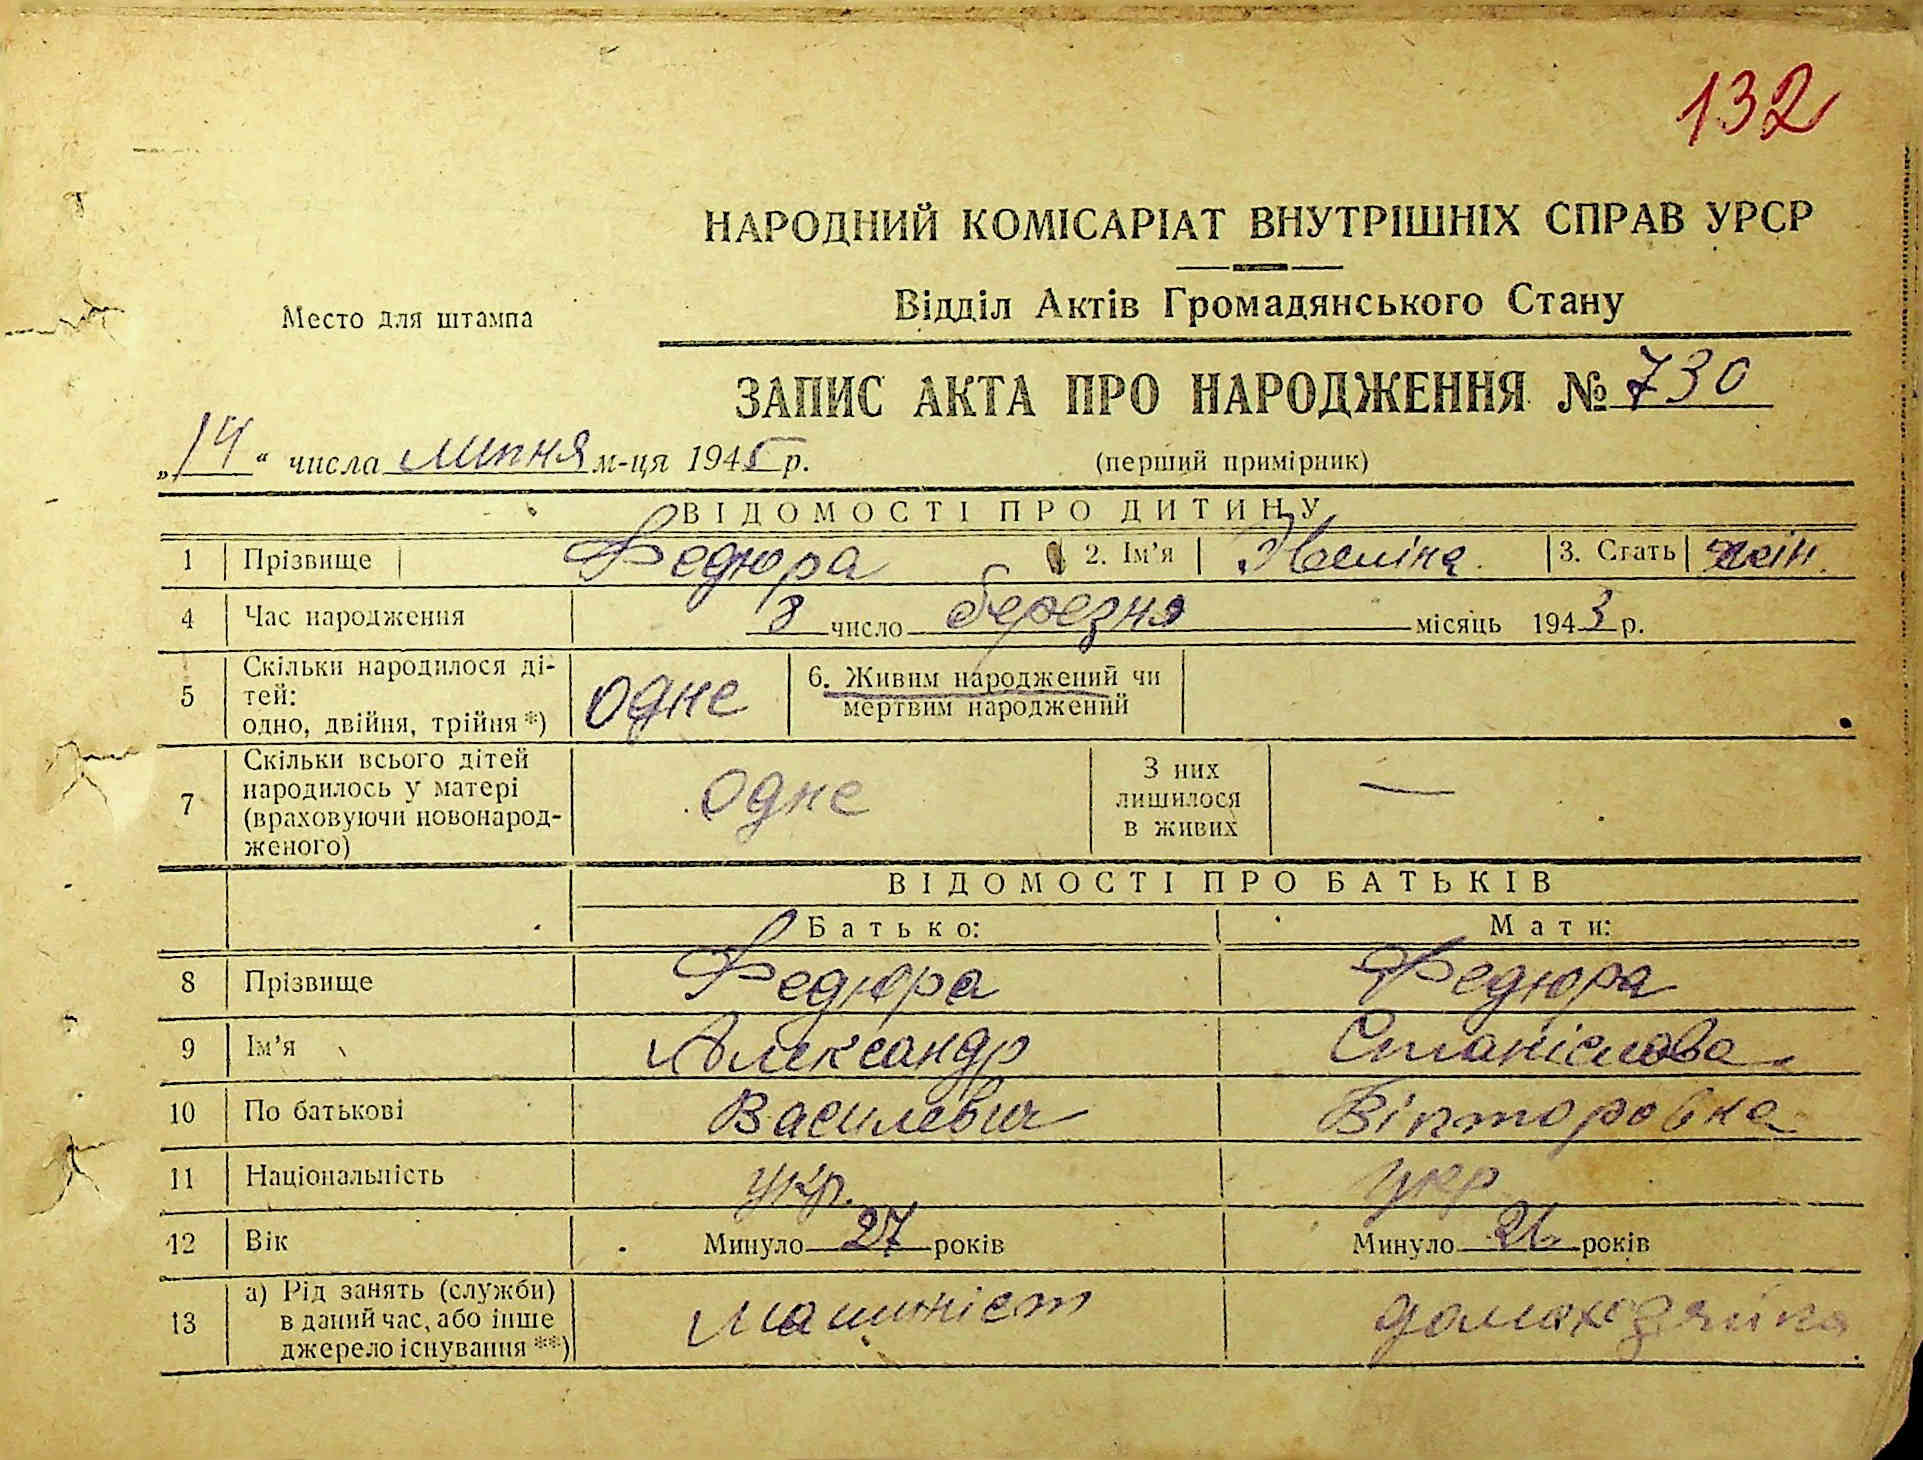 132
НАРОДНИЙ КОМІСАРІАТ ВНУТРІШНІХ СПРАВ УРСР
Відділ Актів Громадянського Стану
Место для штампа
ЗАПИС АКТА ПРО НАРОДЖЕННЯ № 730
„14“ числа липня м-ця 1945 р.
(перший примірник)
ВІДОМОСТІ ПРО ДИТИНУ
1 Прізвище Федюра 2. Ім’я 3. Стать жін.
4 Час народження 8 число березня місяць 1943 р.
5 Скільки народилося ді-
тей:
одно, двійня, трійня *) одне
6. Живим народжений чи
мертвим народжений
7 Скільки всього дітей
народилось у матері
(враховуючи новонарод-
женого) одне
З них
лишилося
в живих —
ВІДОМОСТІ ПРО БАТЬКІВ
Батько: Мати:
8 Прізвище Федюра Федюра
9 Ім’я Александр Станіслава
10 По батькові Василевич Вікторовна
11 Національність укр. укр
12 Вік Минуло 27 років Минуло років
13 а) Рід занять (служби)
в даний час, або інше
джерело існування **) машиніст домохозяйка